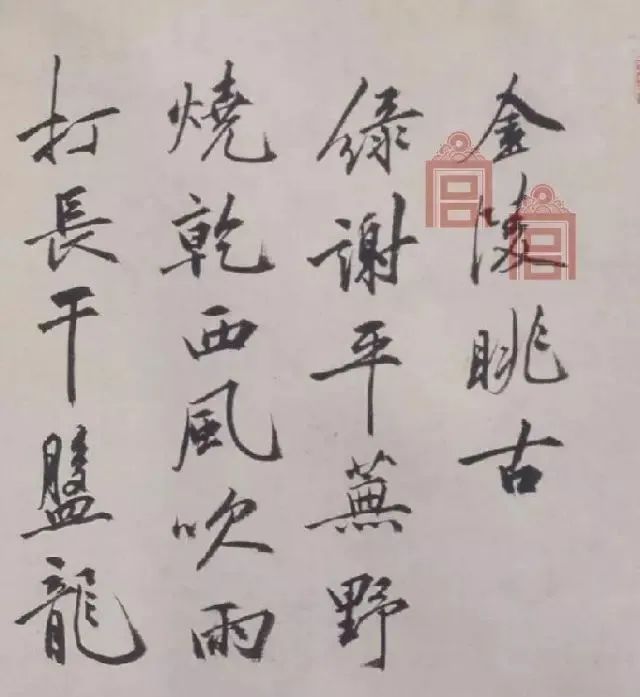 金陵眺古
緑謝平蕪野
燒乾西風吹雨
打長干盤龍